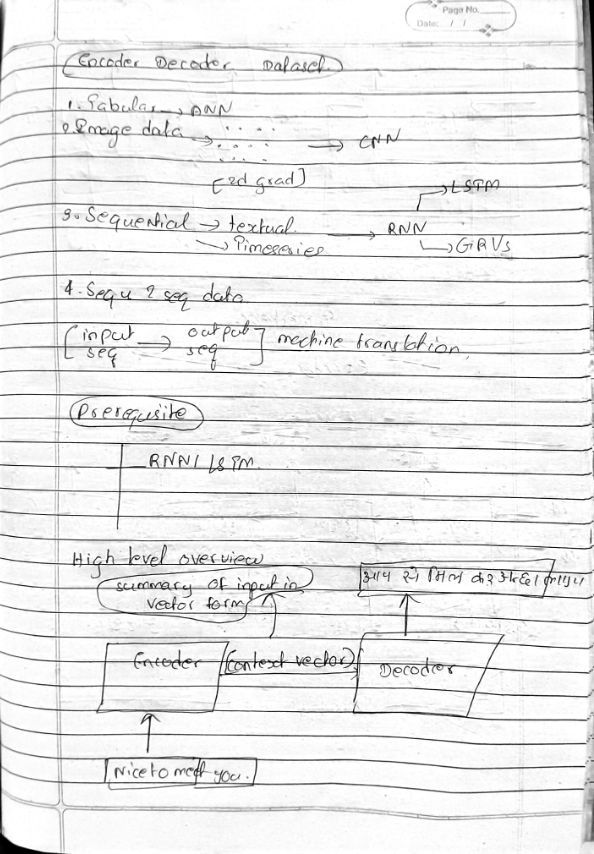 Page No.
Date: / /
Encoder Decoder Dataset
1. Tabular → ANN
2. Image data → → CNN
[2d grad]
→ LSTM
3. Sequential → textual → RNN
→ Timeseries → GRUs
4. Sequ 2 seq data
[input seq → output seq] machine translation
Prerequisite
RNN / LSTM
High level overview
summary of input in
vector form
आप से मिल कर अच्छा लगा
Encoder (context vector) Decoder
Nice to meet you.